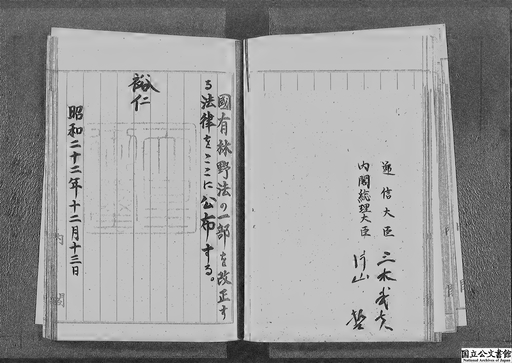 逓信大臣 三木武夫
内閣総理大臣 片山哲
國有林野法の一部を改正す
る法律をここに公布する。
裕仁
昭和二十二年十二月十三日
内閣
国立公文書館
National Archives of Japan